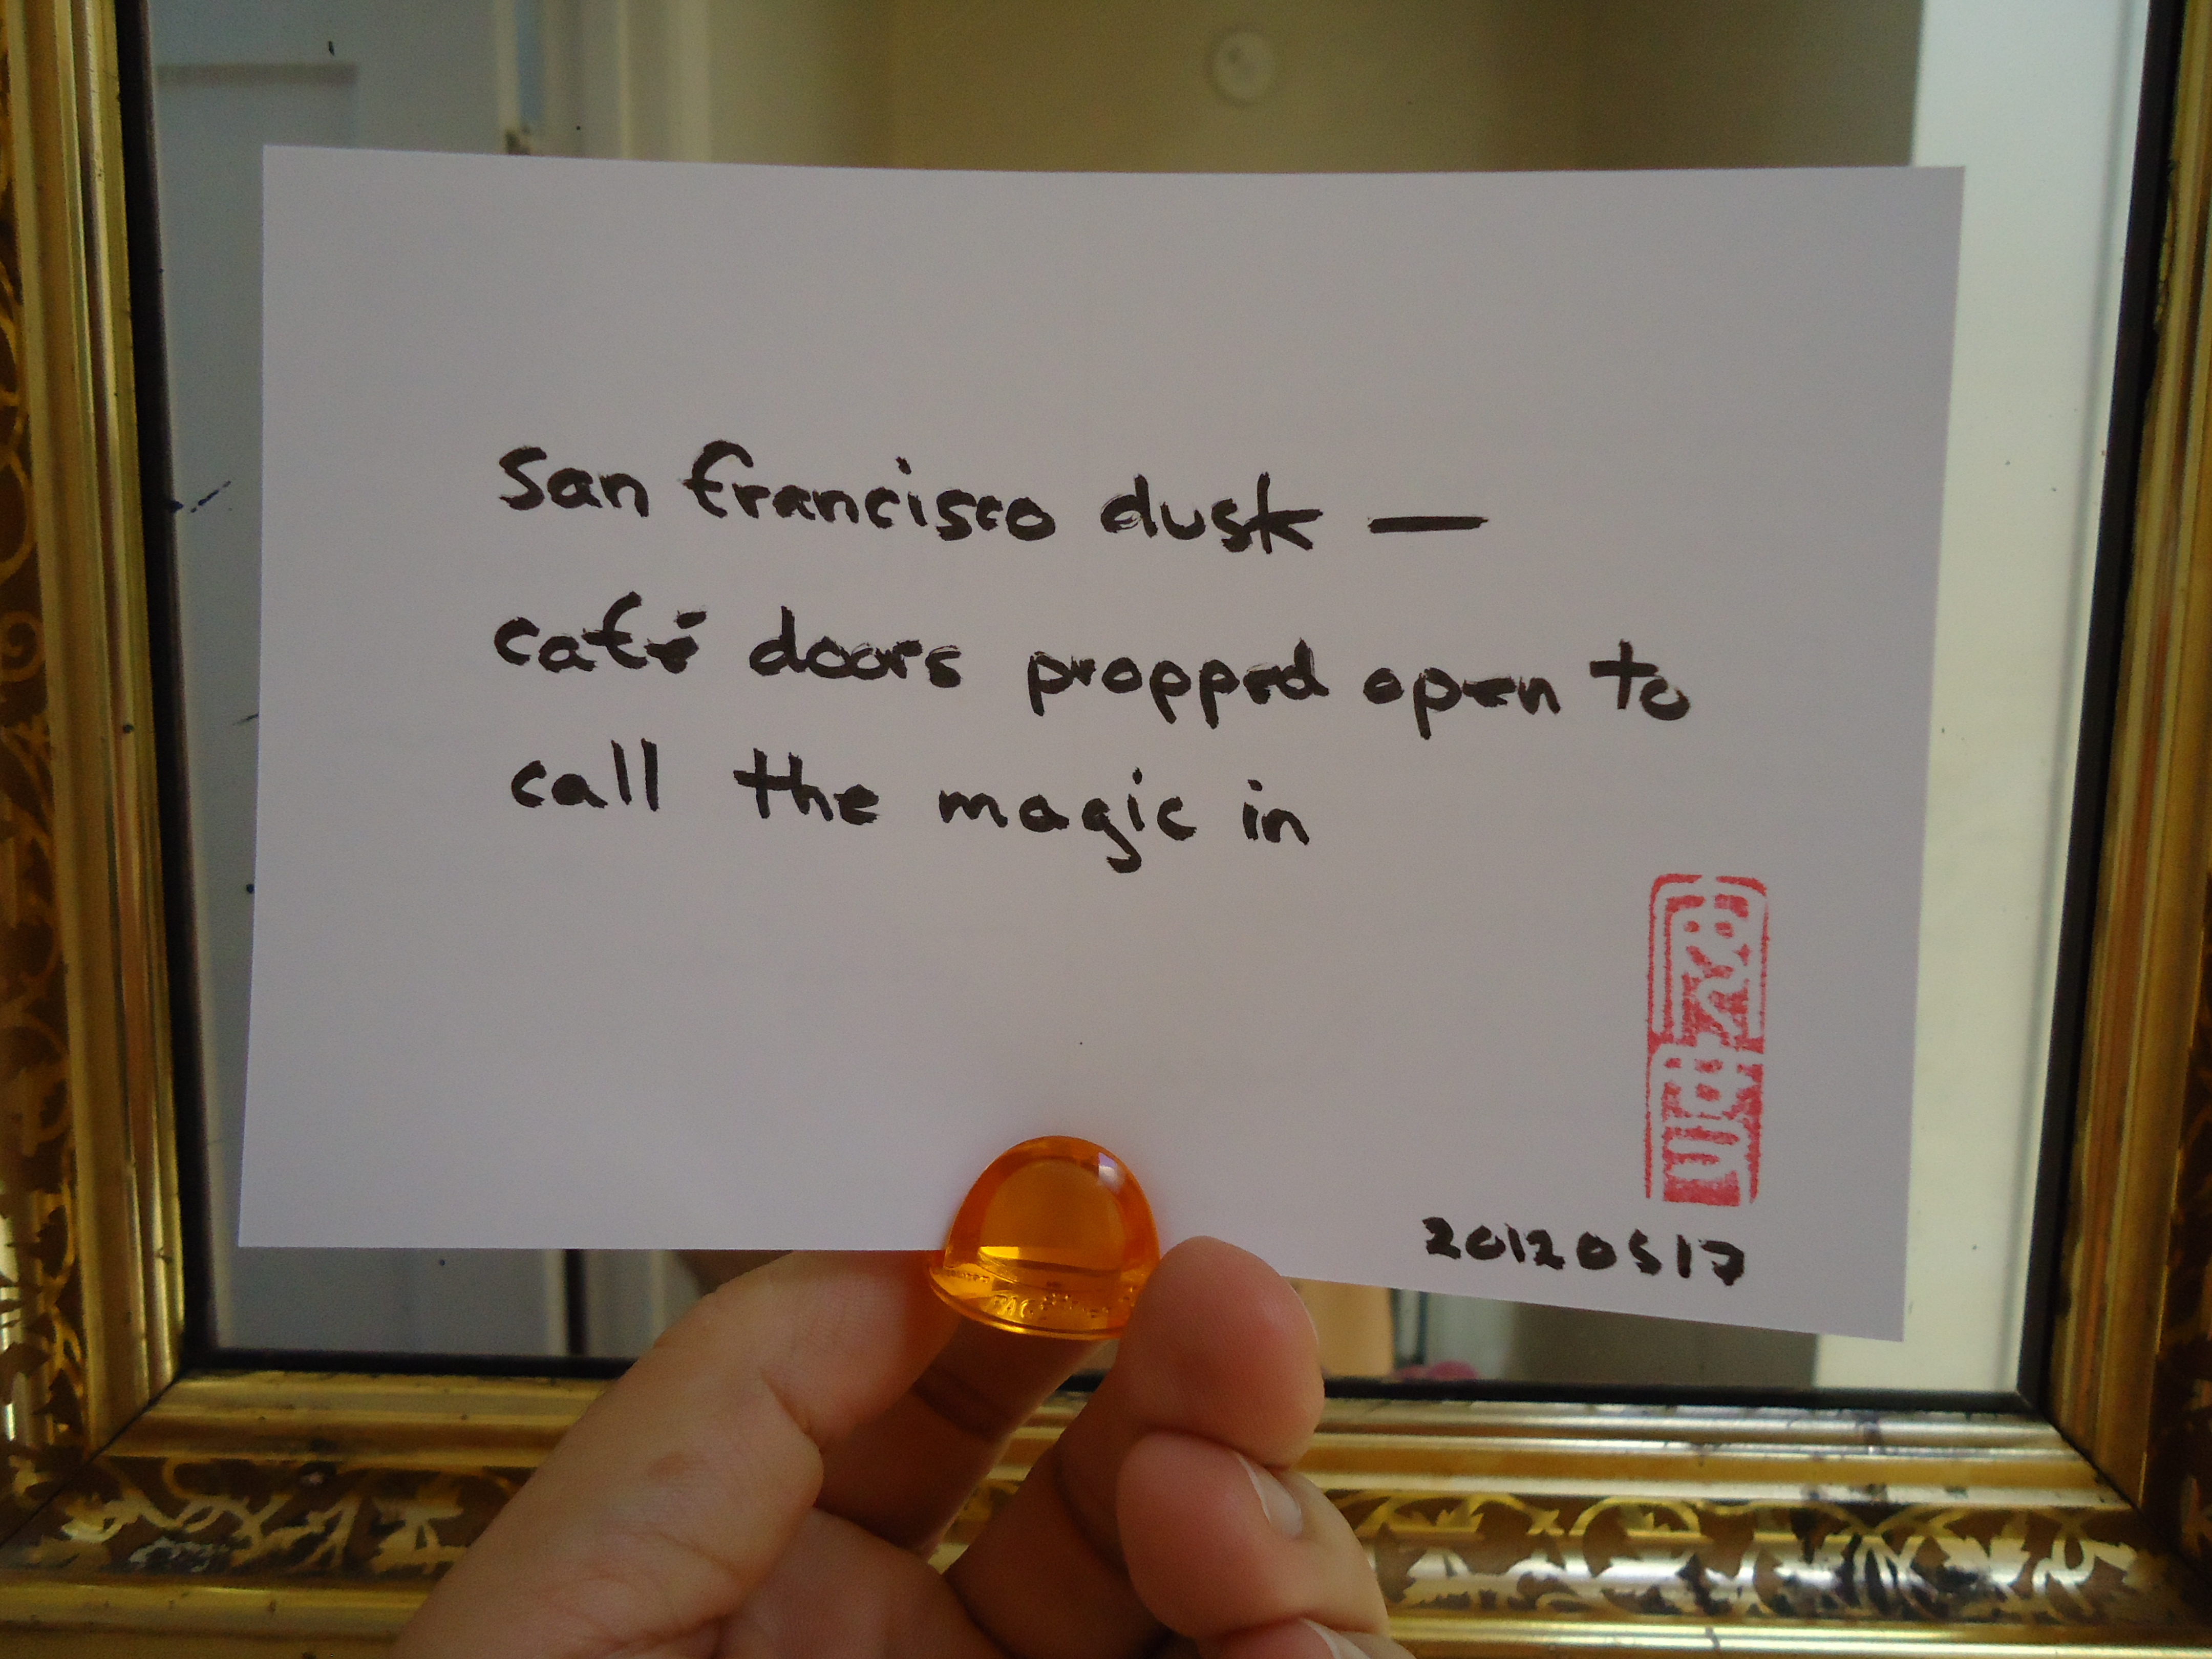 San Francisco dusk —
café doors propped open to
call the magic in
20120517